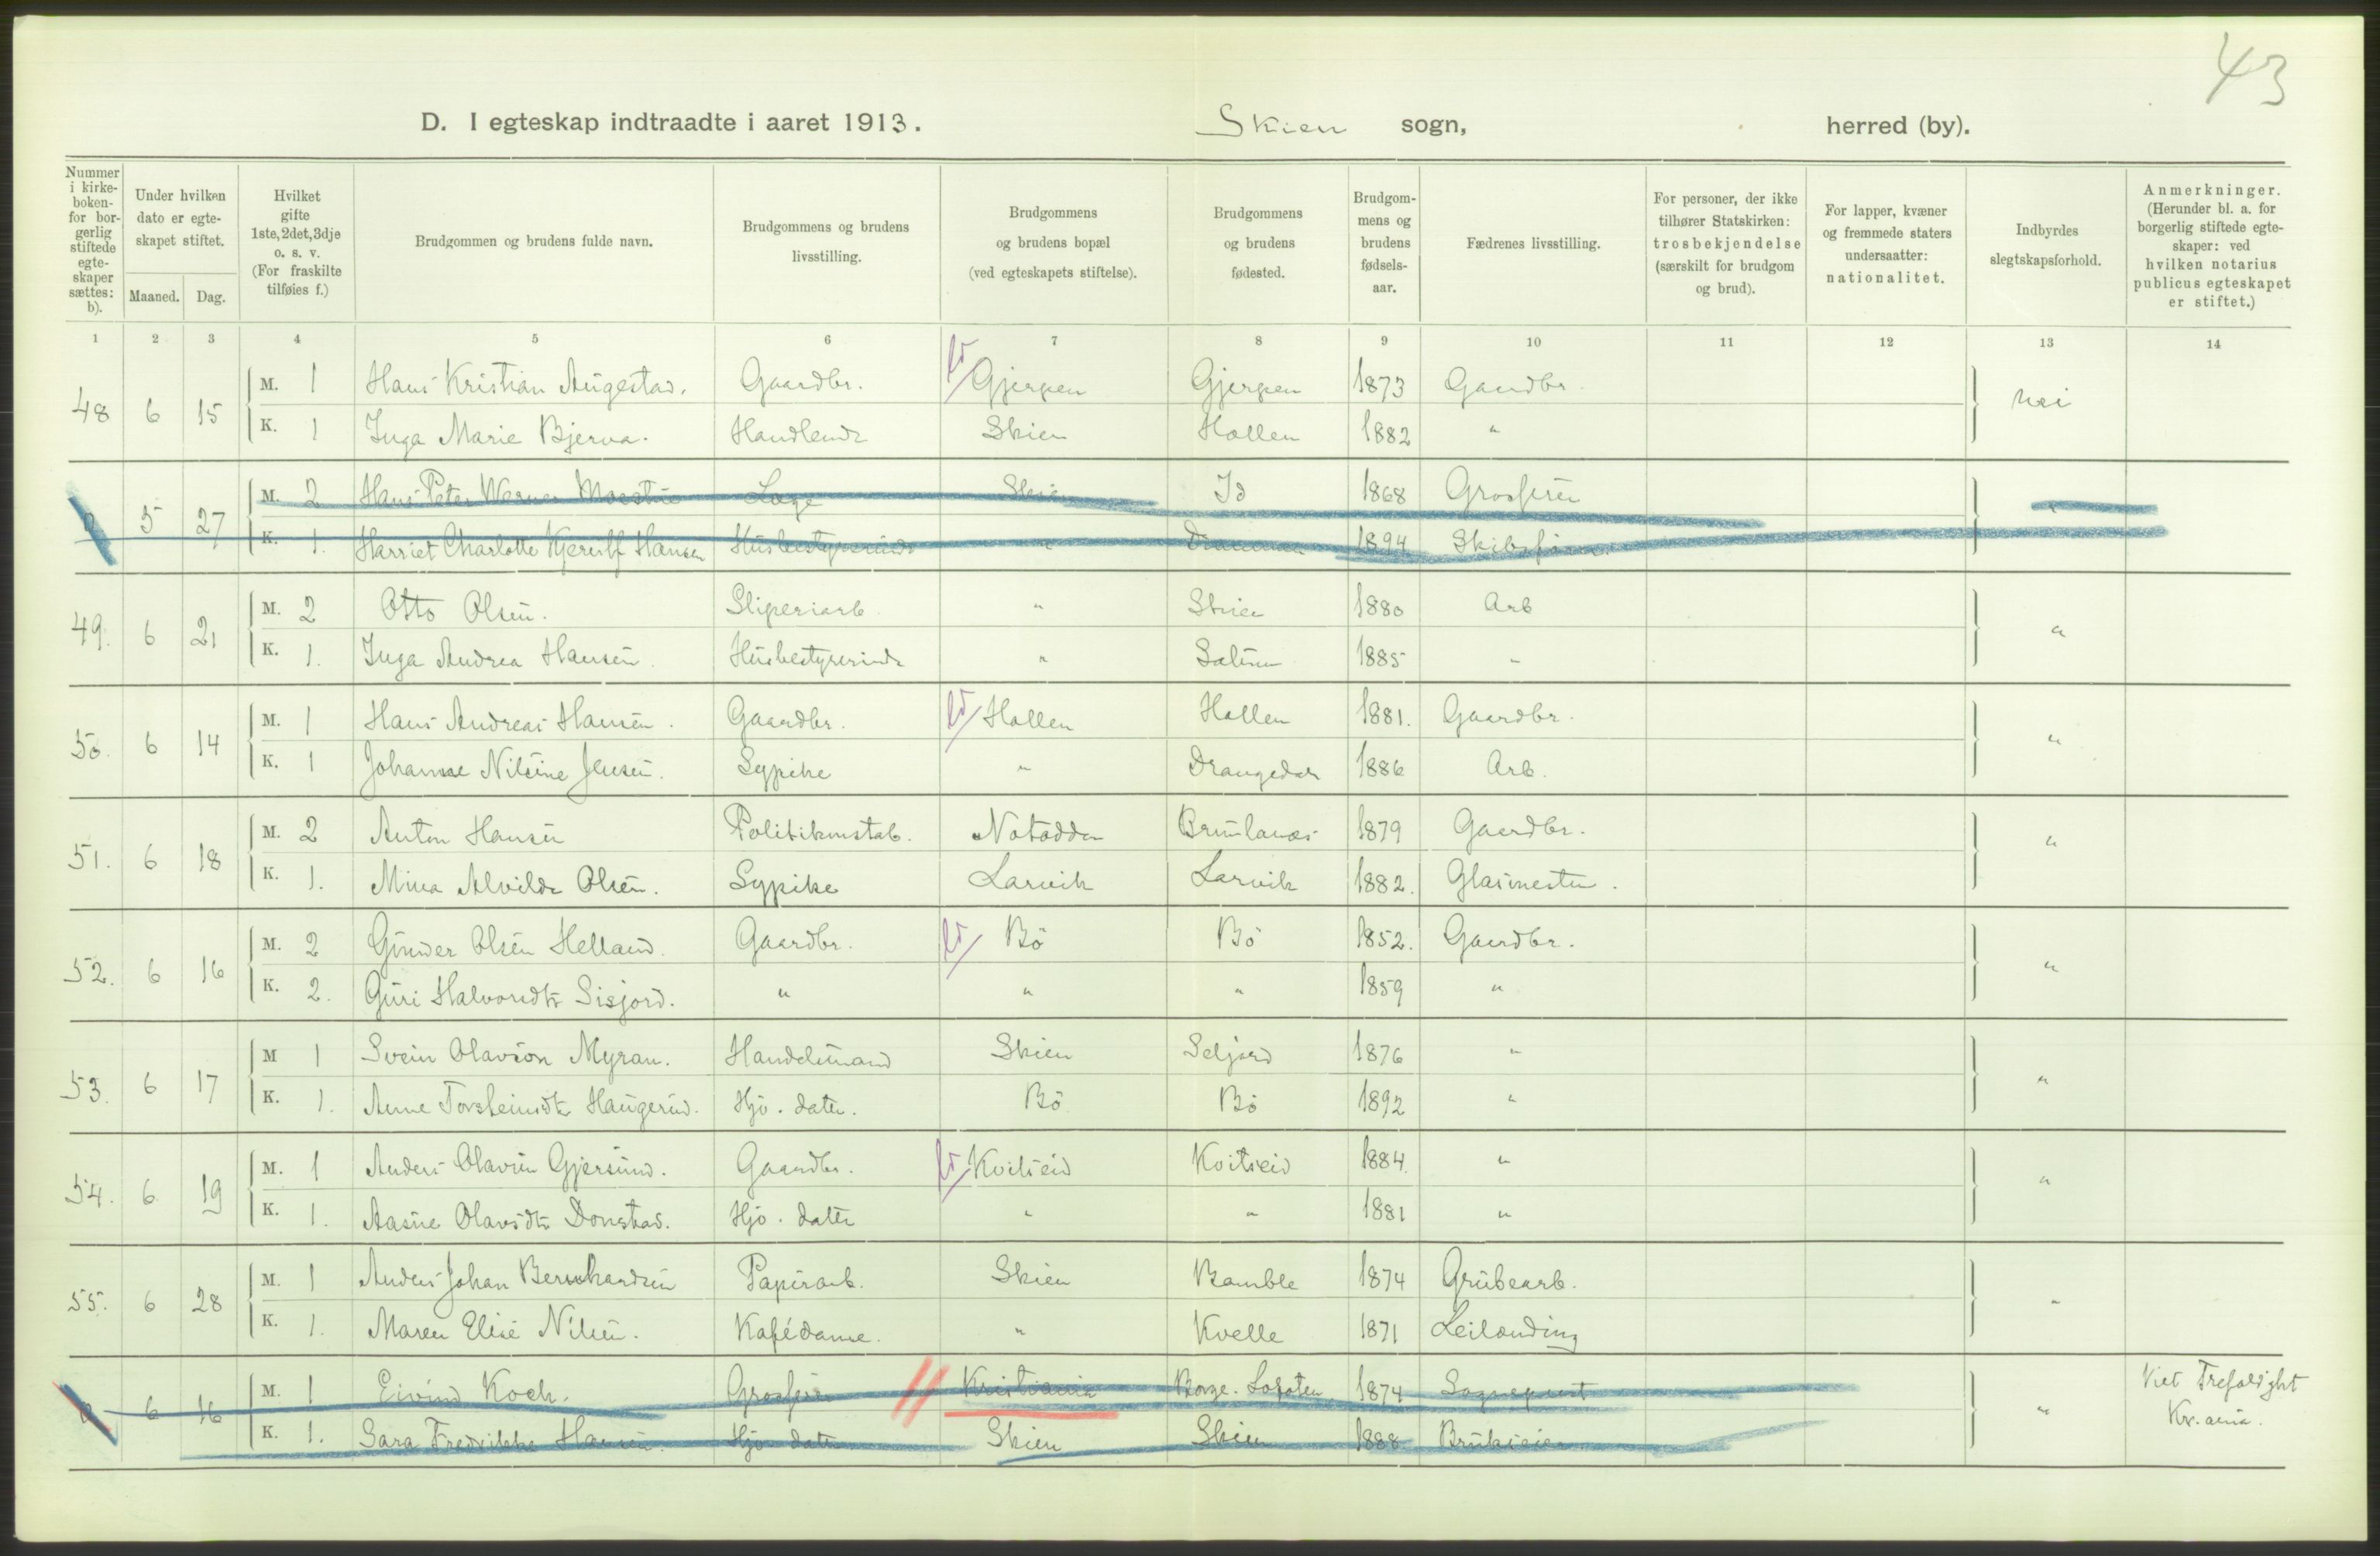 43
D. I egteskap indtraadte i aaret 1913. Skien sogn, herred (by).
Nummer i kirke- boken- for bor- gerlig stiftede egte- skaper sættes: b).
Under hvilken dato er egte- skapet stiftet.
Maaned. Dag.
Hvilket gifte 1ste, 2det, 3dje o. s. v. (For fraskilte tilføies f.)
Brudgommen og brudens fulde navn.
Brudgommens og brudens livsstilling.
Brudgommens og brudens bopæl (ved egteskapets stiftelse).
Brudgommens og brudens fødested.
Brudgom- mens og brudens fødsels- aar.
Fædrenes livsstilling.
For personer, der ikke tilhører Statskirken: trosbekjendelse (særskilt for brudgom og brud).
For lapper, kvæner og fremmede staters undersaatter: nationalitet.
Indbyrdes slegtskapsforhold.
Anmerkninger. (Herunder bl. a. for borgerlig stiftede egte- skaper: ved hvilken notarius publicus egteskapet er stiftet.)
1 2 3 4 5 6 7 8 9 10 11 12 13 14
48 6 15 M. 1 Hans Kristian Augestad. Gaardbr. Gjerpen Gjerpen 1873 Gaardbr. nei
K. 1 Inga Marie Bjerva. Handlende Skien Hollen 1882 "
5 27 M. 2 Hans Peter Werner Læge Skien Id 1868 Grosserer "
K. 1. Harriet Charlotte Kjerulf Hansen Husbestyrerinde " Drammen 1894 Skibsfører
49. 6 21 M. 2 Otto Olsen. Sliperiarb. " Skien 1880 Arb "
K. 1. Inga Andrea Hansen. Husbestyrerinde " Solum 1885 "
50. 6 14 M. 1 Hans Andreas Hansen. Gaardbr. Hollen Hollen 1881. Gaardbr. "
K. 1 Johanne Nilsine Jensen. Sypike " Drangedal 1886 Arb.
51. 6 18 M. 2 Anton Hansen Politikonstab. Notodden Brunlanes 1879 Gaardbr. "
K. 1. Mina Alvilde Olsen. Sypike Larvik Larvik 1882. Glasmester.
52. 6 16 M. 2 Gunder Olsen Helland. Gaardbr. Bö Bö 1852. Gaardbr. "
K. 2. Guri Halvorsdtr Sisjord. " " " 1859 "
53. 6 17 M 1 Svein Olavson Myran. Handelsmand Skien Seljord 1876 " "
K. 1. Anne Torsteinsdtr Haugerud. Hjv. datter. Bö Bö 1892 "
54. 6 19 M. 1 Anders Olavsen Gjersund. Gaardbr. Kviteseid Kviteseid 1884 " "
K. 1. Aasne Olavsdtr Donstad. Hjv. datter " " 1881 "
55. 6 28 M. 1 Anders Johan Bernhardsen Papirarb. Skien Bamble 1874 Grubearb. "
K. 1. Maren Elise Nilsen. Kafédame. " Kvelle 1871 Leilænding
6 16 M. 1 Eivind Koch. Grosserer Kristiania Borge. Lofoten 1874 Sogneprest " Viet Trefoldight
K. 1. Sara Fredrikke Hansen. Hjv. datter Skien Skien 1888 Brukseier Kr.ania.